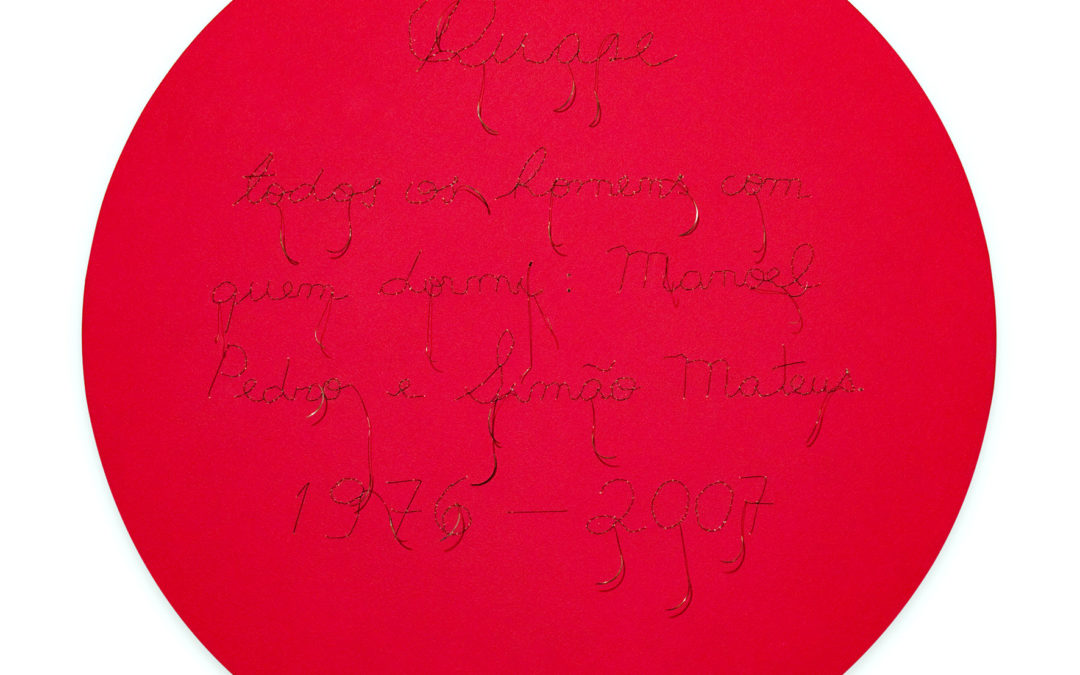 Quase
todos os homens com
quem dormi: Manoel
Pedro e Simão Mateus
1976 — 2007